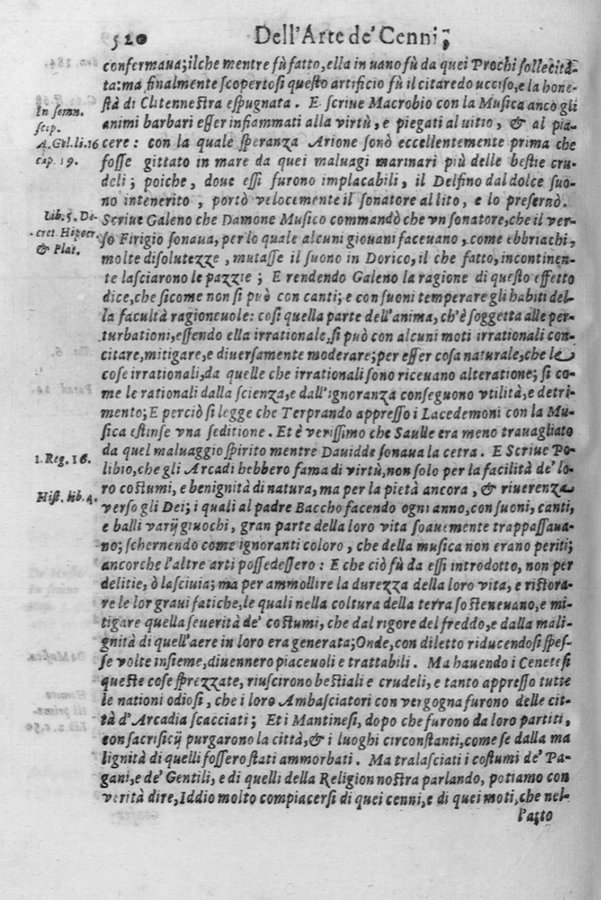 520 Dell'Arte de' Cenni;
confermaua; ilche mentre fù fatto, ella in uano fù da quei Prochi sollecita-
ta: ma finalmente scopertosi questo artificio fù il citaredo ucciso, e la hone-
stà di Clitennestra espugnata. E scriue Macrobio con la Musica anco gli
In somn.
animi barbari esser infiammati alla virtù, e piegati al uitio, & al pia-
scip.
A. Gel. li. 16
cere: con la quale speranza Arione sonò eccellentemente prima che
cap. 19.
fosse gittato in mare da quei maluagi marinari più delle bestie cru-
deli; poiche, doue essi furono implacabili, il Delfino dal dolce suo-
no intenerito, portò velocemente il sonatore al lito, e lo preseruò.
Lib. 5. De-
Scriue Galeno che Damone Musico commandò che vn sonatore, che il ver-
cret. Hipocr.
so Firigio sonaua, per lo quale alcuni giouani faceuano, come ebbriachi,
& Plat.
molte disolutezze, mutasse il suono in Dorico, il che fatto, incontinen-
te lasciarono le pazzie; E rendendo Galeno la ragione di questo effetto
dice, che sicome non si può con canti; e con suoni temperare gli habiti del-
la facultà ragioneuole: così quella parte dell'anima, ch'è soggetta alle per-
turbationi, essendo ella irrationale, si può con alcuni moti irrationali con-
citare, mitigare, e diuersamente moderare; per esser cosa naturale, che le
cose irrationali, da quelle che irrationali sono riceuano alteratione; si co-
me le rationali dalla scienza, e dall'ignoranza conseguono vtilità, e detri-
mento; E perciò si legge che Terprando appresso i Lacedemoni con la Mu-
sica estinse vna seditione. Et è verissimo che Saulle era meno trauagliato
1. Reg. 16.
da quel maluaggio spirito mentre Dauidde sonaua la cetra. E Scriue Po-
libio, che gli Arcadi hebbero fama di virtù, non solo per la facilità de' lo-
Hist. lib. 4.
ro costumi, e benignità di natura, ma per la pietà ancora, & riuerenza
verso gli Dei; i quali al padre Baccho facendo ogni anno, con suoni, canti,
e balli varij giuochi, gran parte della loro vita soauemente trappassaua-
no; schernendo come ignoranti coloro, che della musica non erano periti;
ancorche l'altre arti possedessero: E che ciò fù da essi introdotto, non per
delitie, ò lasciuia; ma per ammollire la durezza della loro vita, e ristora-
re le lor graui fatiche, le quali nella coltura della terra sosteneuano, e mi-
tigare quella seuerità de' costumi, che dal rigore del freddo, e dalla mali-
gnità di quell'aere in loro era generata; Onde, con diletto riducendosi spes-
se volte insieme, diuennero piaceuoli e trattabili. Ma hauendo i Cenetesi
queste cose sprezzate, riuscirono bestiali e crudeli, e tanto appresso tutte
le nationi odiosi, che i loro Ambasciatori con vergogna furono delle cit-
tà d'Arcadia scacciati; Et i Mantinesi, dopo che furono da loro partiti,
con sacrificij purgarono la città, & i luoghi circonstanti, come se dalla ma
lignità di quelli fossero stati ammorbati. Ma tralasciati i costumi de' Pa-
gani, e de' Gentili, e di quelli della Religion nostra parlando, potiamo con
verità dire, Iddio molto compiacersi di quei cenni, e di quei moti, che nel-
l'atto